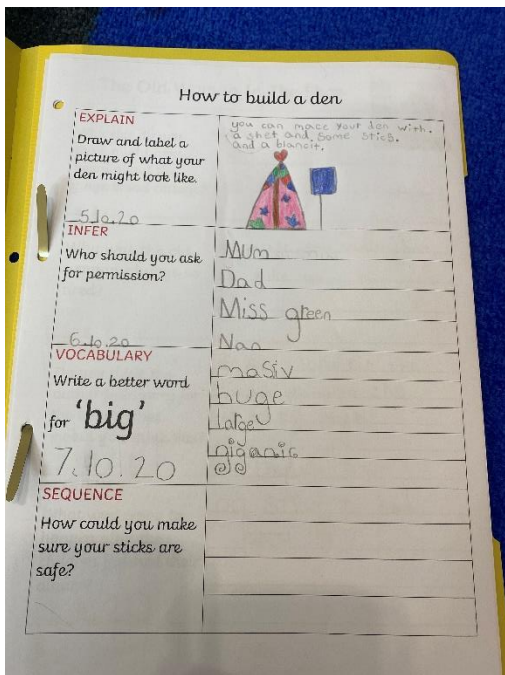 How to build a den
EXPLAIN
Draw and label a
picture of what your
den might look like.
5.10.20
you can mace your den with.
a shet and. some sticS.
and a blancit.
INFER
Who should you ask
for permission?
6.10.20
Mum
Dad
Miss green
Nan
VOCABULARY
Write a better word
for 'big'
7.10.20
masiv
huge
large
giganic
SEQUENCE
How could you make
sure your sticks are
safe?